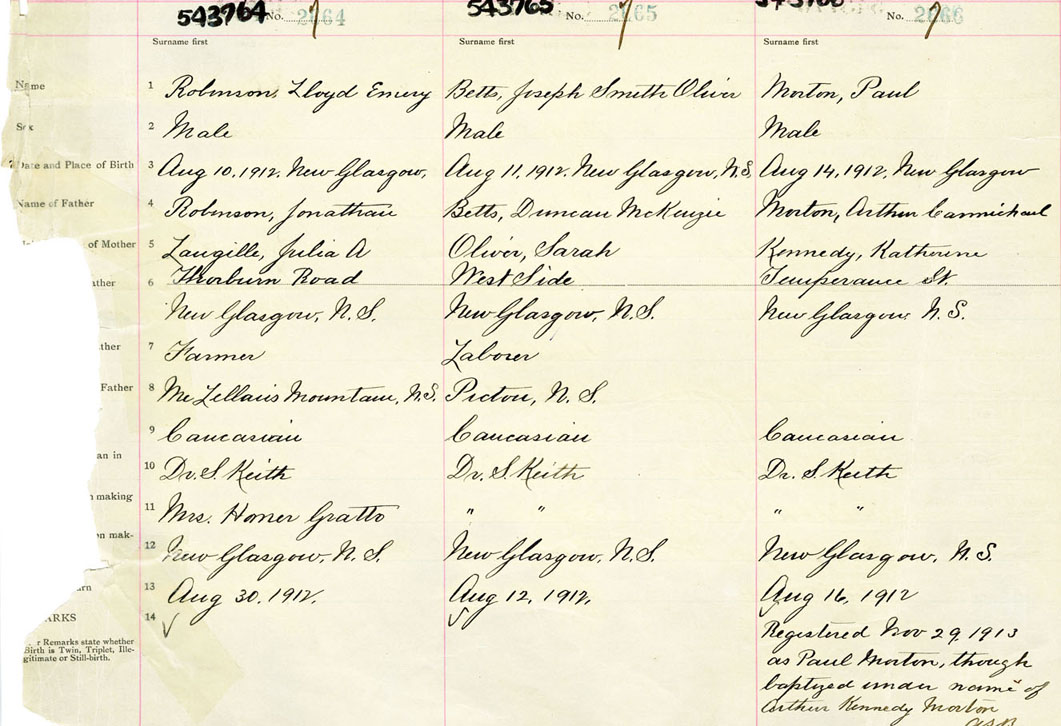 543764 No. 2664 543765 No. 2665 No. 2666
Surname first Surname first Surname first
Name 1 Robinson, Lloyd Emery Betts, Joseph Smith Oliver Morton, Paul
Sex 2 Male Male Male
Date and Place of Birth 3 Aug 10, 1912, New Glasgow, Aug 11, 1912, New Glasgow, N.S. Aug 14, 1912, New Glasgow
Name of Father 4 Robinson, Jonathan Betts, Duncan McKenzie Morton, Arthur Carmichael
of Mother 5 Langille, Julia A Oliver, Sarah Kennedy, Katherine
ather 6 Thorburn Road West Side Temperance St.
New Glasgow, N.S. New Glasgow, N.S. New Glasgow, N.S.
ther 7 Farmer Laborer
Father 8 McLellan's Mountain, N.S. Pictou, N.S.
9 Caucasian Caucasian Caucasian
an in 10 Dr. S. Keith Dr. S. Keith Dr. S. Keith
making 11 Mrs. Homer Gratto " " " "
n mak- 12 New Glasgow, N.S. New Glasgow, N.S. New Glasgow, N.S.
urn 13 Aug 30, 1912. Aug 12, 1912, Aug 16, 1912
ARKS 14 Registered Nov 29, 1913
r Remarks state whether as Paul Morton, though
Birth is Twin, Triplet, Ille- baptized under name of
gitimate or Still-birth. Arthur Kennedy Morton